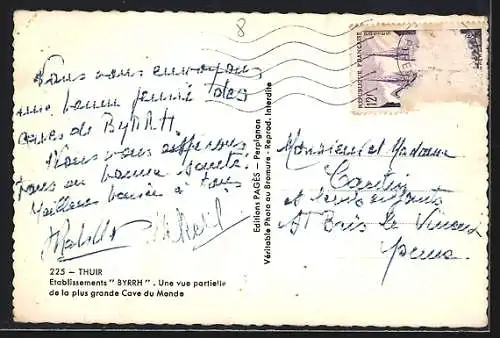 8
Nous vous envoyons
une bonne pensée des
Caves de BYRRH.
Nous vous espérons
tous en bonne santé.
Meilleurs baisers à tous
225 — THUIR
Etablissements " BYRRH " . Une vue partielle
de la plus grande Cave du Monde
Editions PAGÈS — Perpignan
Véritable Photo au Bromure - Reprod. Interdite
POSTES
REPUBLIQUE FRANÇAISE
12F
Monsieur et Madame
et leurs enfants
St Bris le Vineux
Yonne